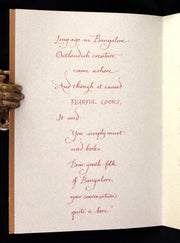 Long ago in Bangalore
Outlandish creature
came ashore.
And though it caused
FEARFUL LOOKS,
It said
"You simply must
read books
Dear gentle folk
of Bangalore,
your conversation's
quite a bore."